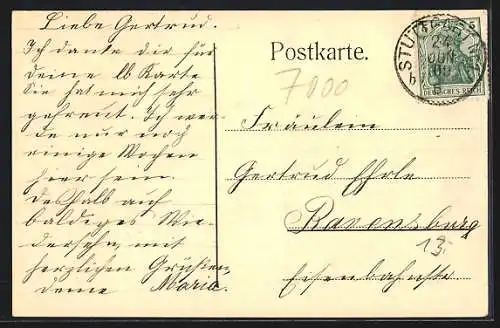 Liebe Gertrud.
Ich danke dir für
deine lb Karte
Sie hat mich sehr
gefreut. Ich wer-
de nur noch
einige Wochen
hier sein.
Deshalb auf
baldiges Wie-
dersehn mit
herzlichen Grüßen
deine Maria.
Postkarte.
7000
STUTTGART
24
JUN
DEUTSCHES REICH
Fräulein
Gertrud Ehrle
Ravensburg
13.-
Eisenbahnstr